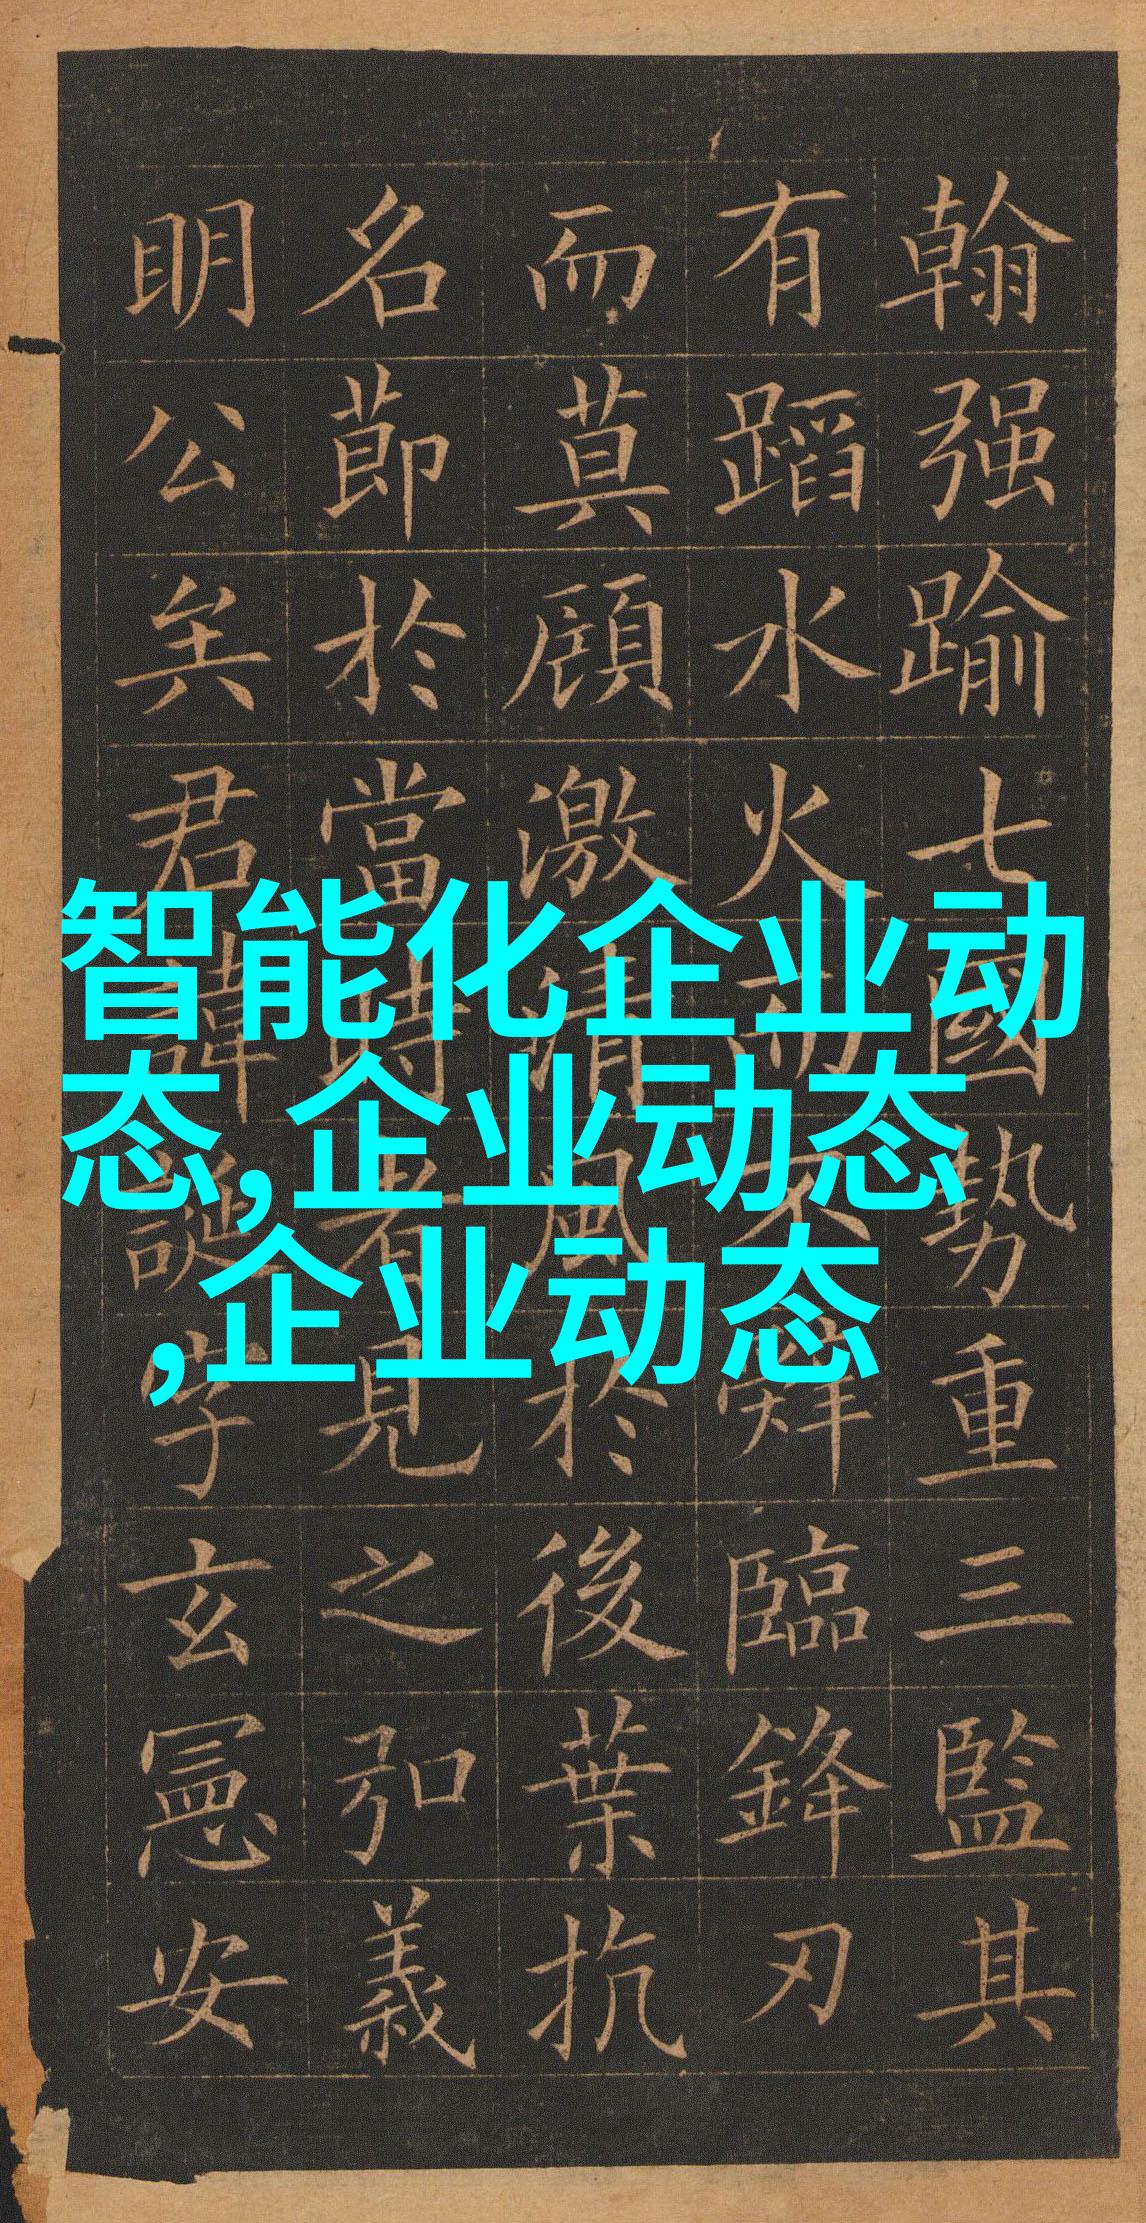 翰强踰七國勢重三監其
有蹈水火而不辤臨鋒刃
而莫顧激清風於後葉抗
名莭於當時者見之弘義
明公矣君諱誕字玄憲安
智能化企业动
态,企业动态
,企业动态